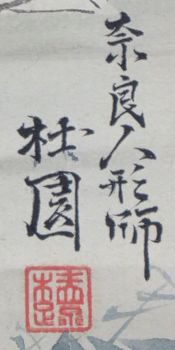 奈良人形師
杜園